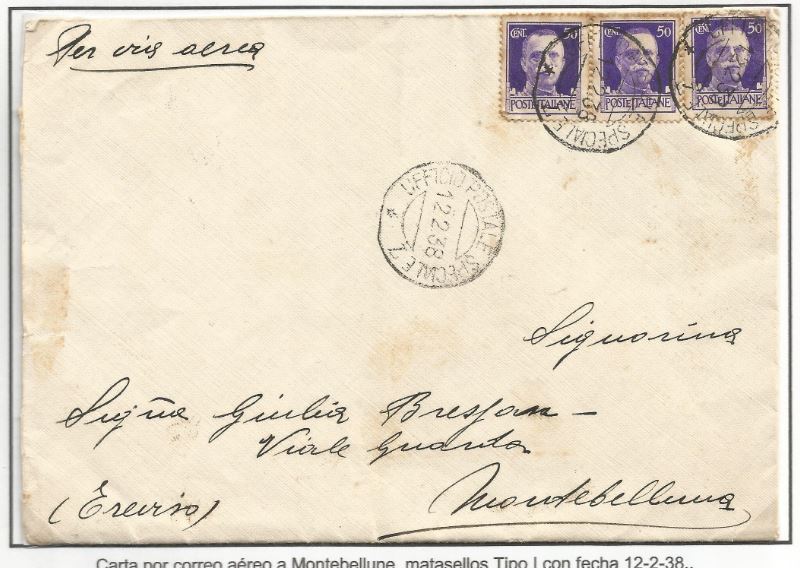 Per via aerea
CENT. 50 50 50
POSTE ITALIANE POSTE ITALIANE POSTE ITALIANE
UFFICIO POSTALE SPECIALE 7
12.2.38
Signorina
Sigña Giulia Bressan -
Viale Guarda
(Treviso) Montebelluna
Carta por correo aéreo a Montebellune, matasellos Tipo I con fecha 12-2-38..